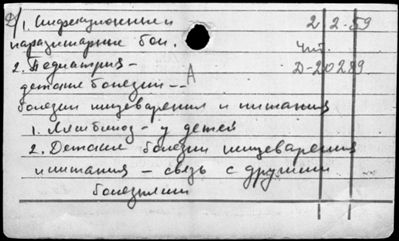 1. Инфекционные и 2 2-59
паразитарные бол. Чит.
2. Педиатрия - А Д-20289
детские болезни -
болезни пищеварения и питания
1. Лямблиоз - у детей
2. Детские болезни пищеварения
и питания - связь с другими
болезнями